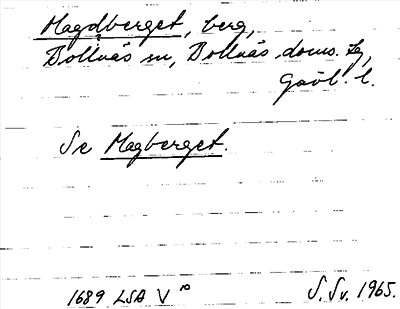 Magdberget, berg,
Bollnäs sn, Bollnäs doms. tg,
Gävl. l.
Se Magberget.
1689 LSA V 10 S. Sv. 1965.